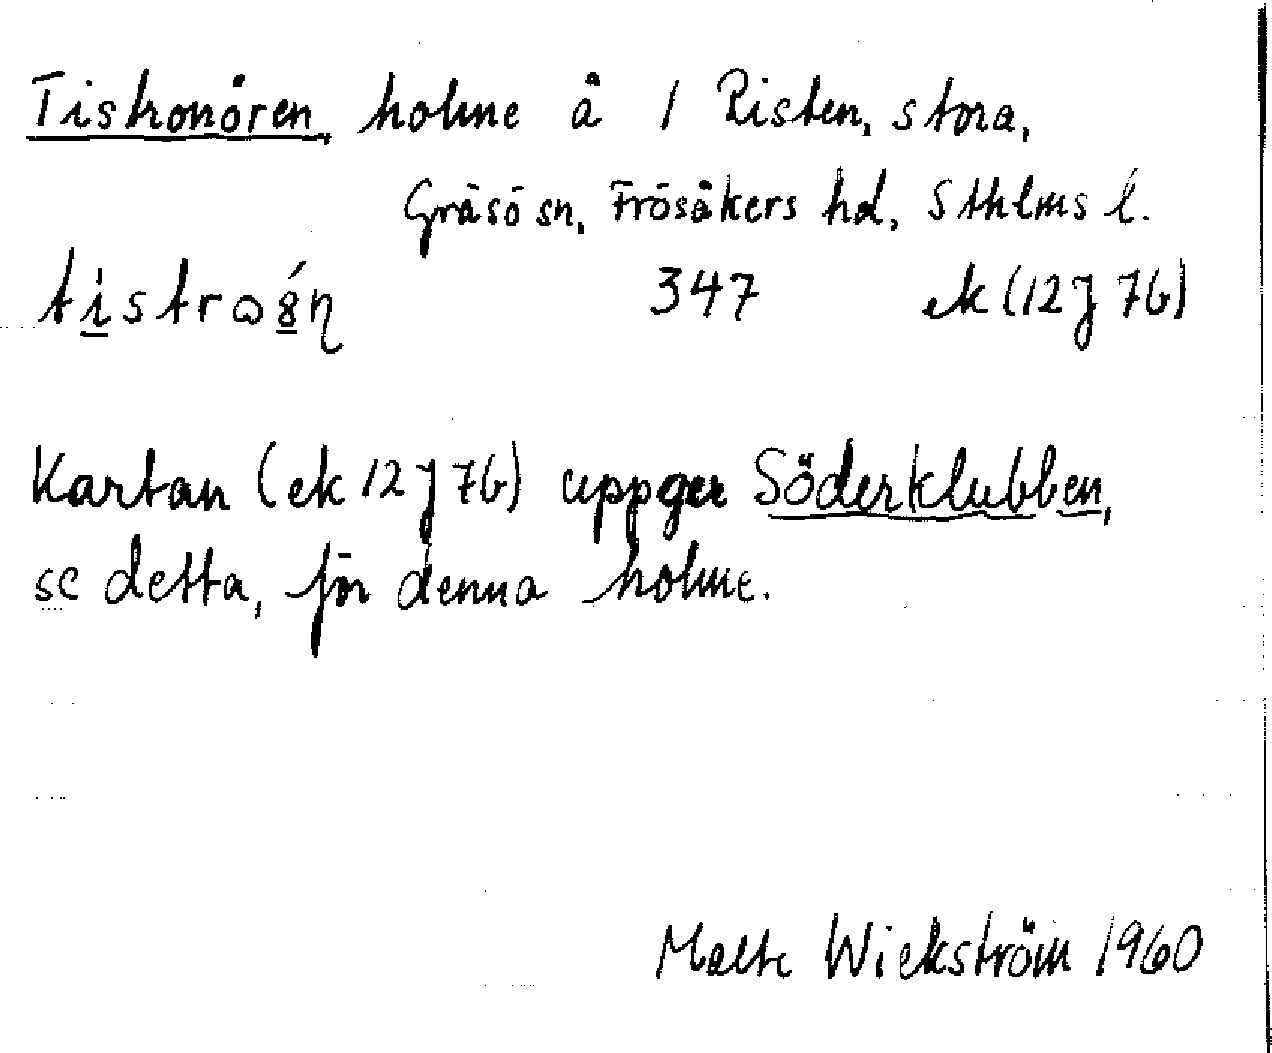 Tistronören, holme å 1 Risten, stora,
Gräsö sn, Frösåkers hd, Sthlms l.
347 ek (12J 7b)
Kartan (ek 12J 7b) uppger Söderklubben,
se detta, för denna holme.
Malte Wickström 1960